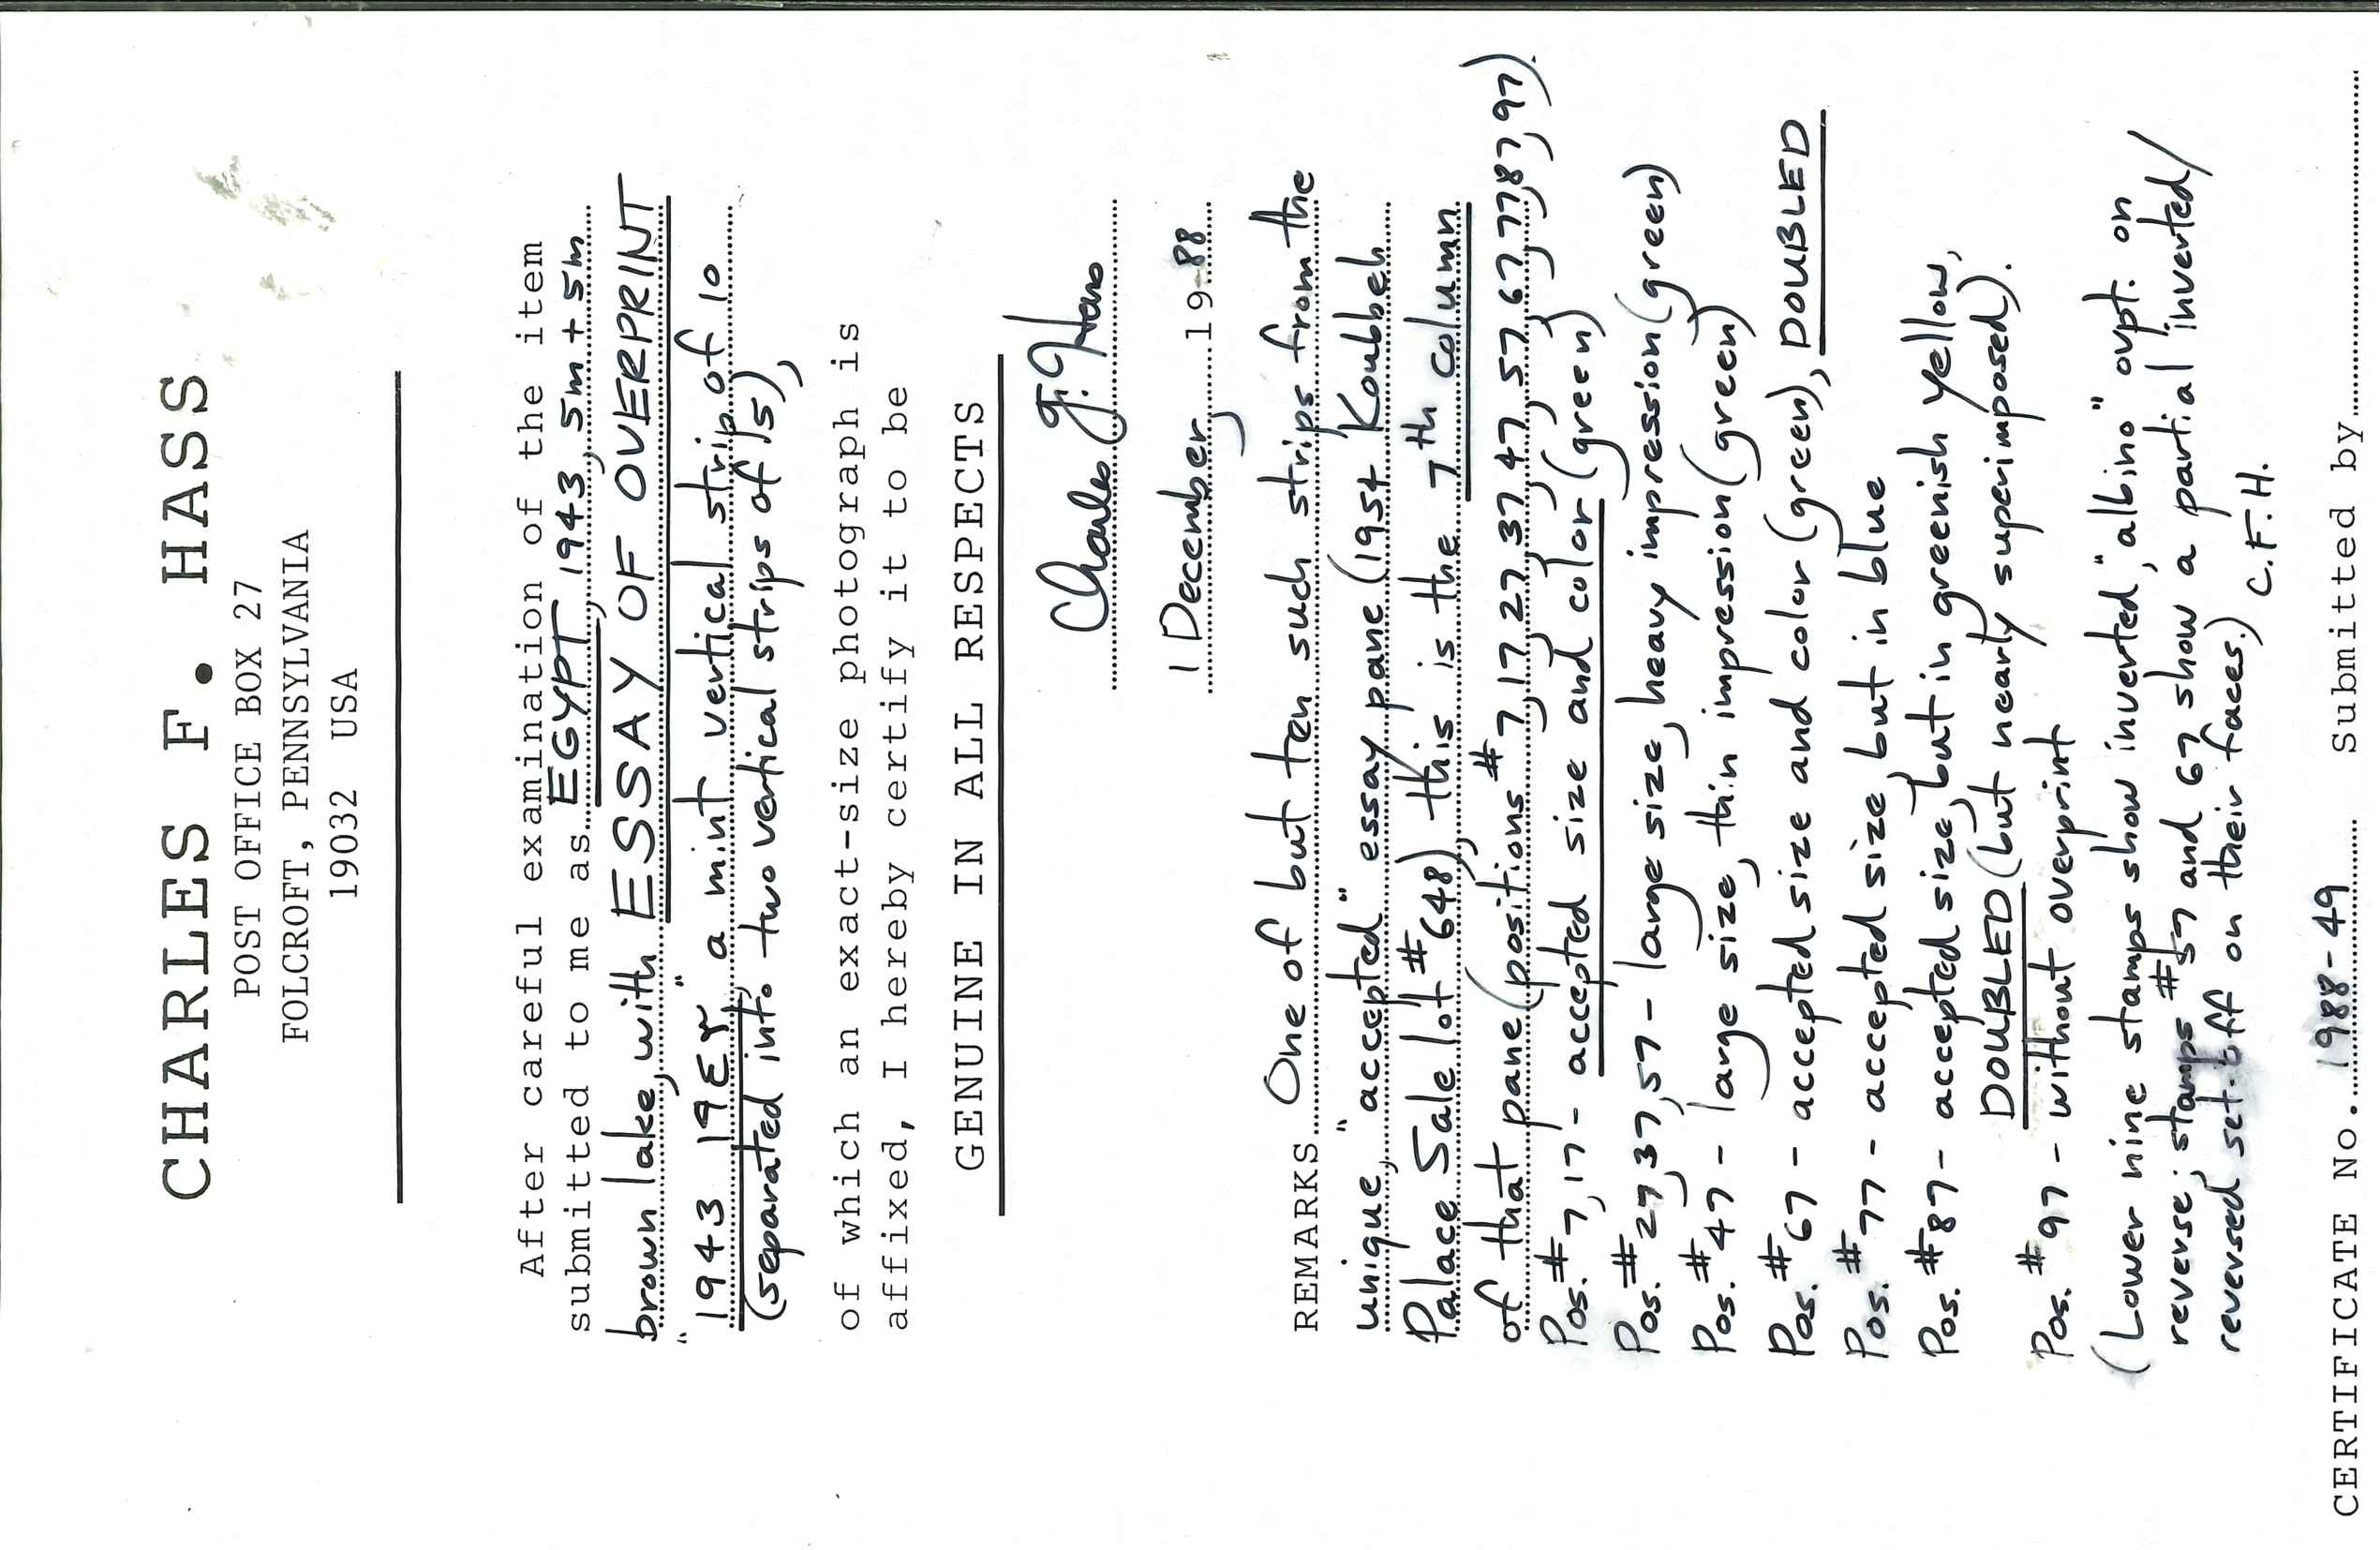 CHARLES F. HASS
POST OFFICE BOX 27
FOLCROFT, PENNSYLVANIA
19032 USA
After careful examination of the item
submitted to me as EGYPT, 1943, 5m + 5m
brown lake, with ESSAY OF OVERPRINT
"1943 19Er", a mint vertical strip of 10
(separated into two vertical strips of 5),
of which an exact-size photograph is
affixed, I hereby certify it to be
GENUINE IN ALL RESPECTS
Charles F. Hass
1 December 1988
REMARKS One of but ten such strips from the
unique, "accepted" essay pane (1954 Koubbeh
Palace Sale lot #648), this is the 7th column
of that pane (positions #7,17,27,37,47,57,67,77,87,97).
Pos. #7,17- accepted size and color (green)
Pos. #27,37,57- large size, heavy impression (green)
Pos. #47 - large size, thin impression (green)
Pos. #67 - accepted size and color (green), DOUBLED
Pos. #77 - accepted size but in blue
Pos. #87 - accepted size, but in greenish yellow,
DOUBLED (but nearly superimposed).
Pos. #97 - without overprint
(Lower nine stamps show inverted, "albino" ovpt. on
reverse; stamps #57 and 67 show a partial inverted/
reversed set-off on their faces.)
C.F.H.
CERTIFICATE No. 1988-49 Submitted by